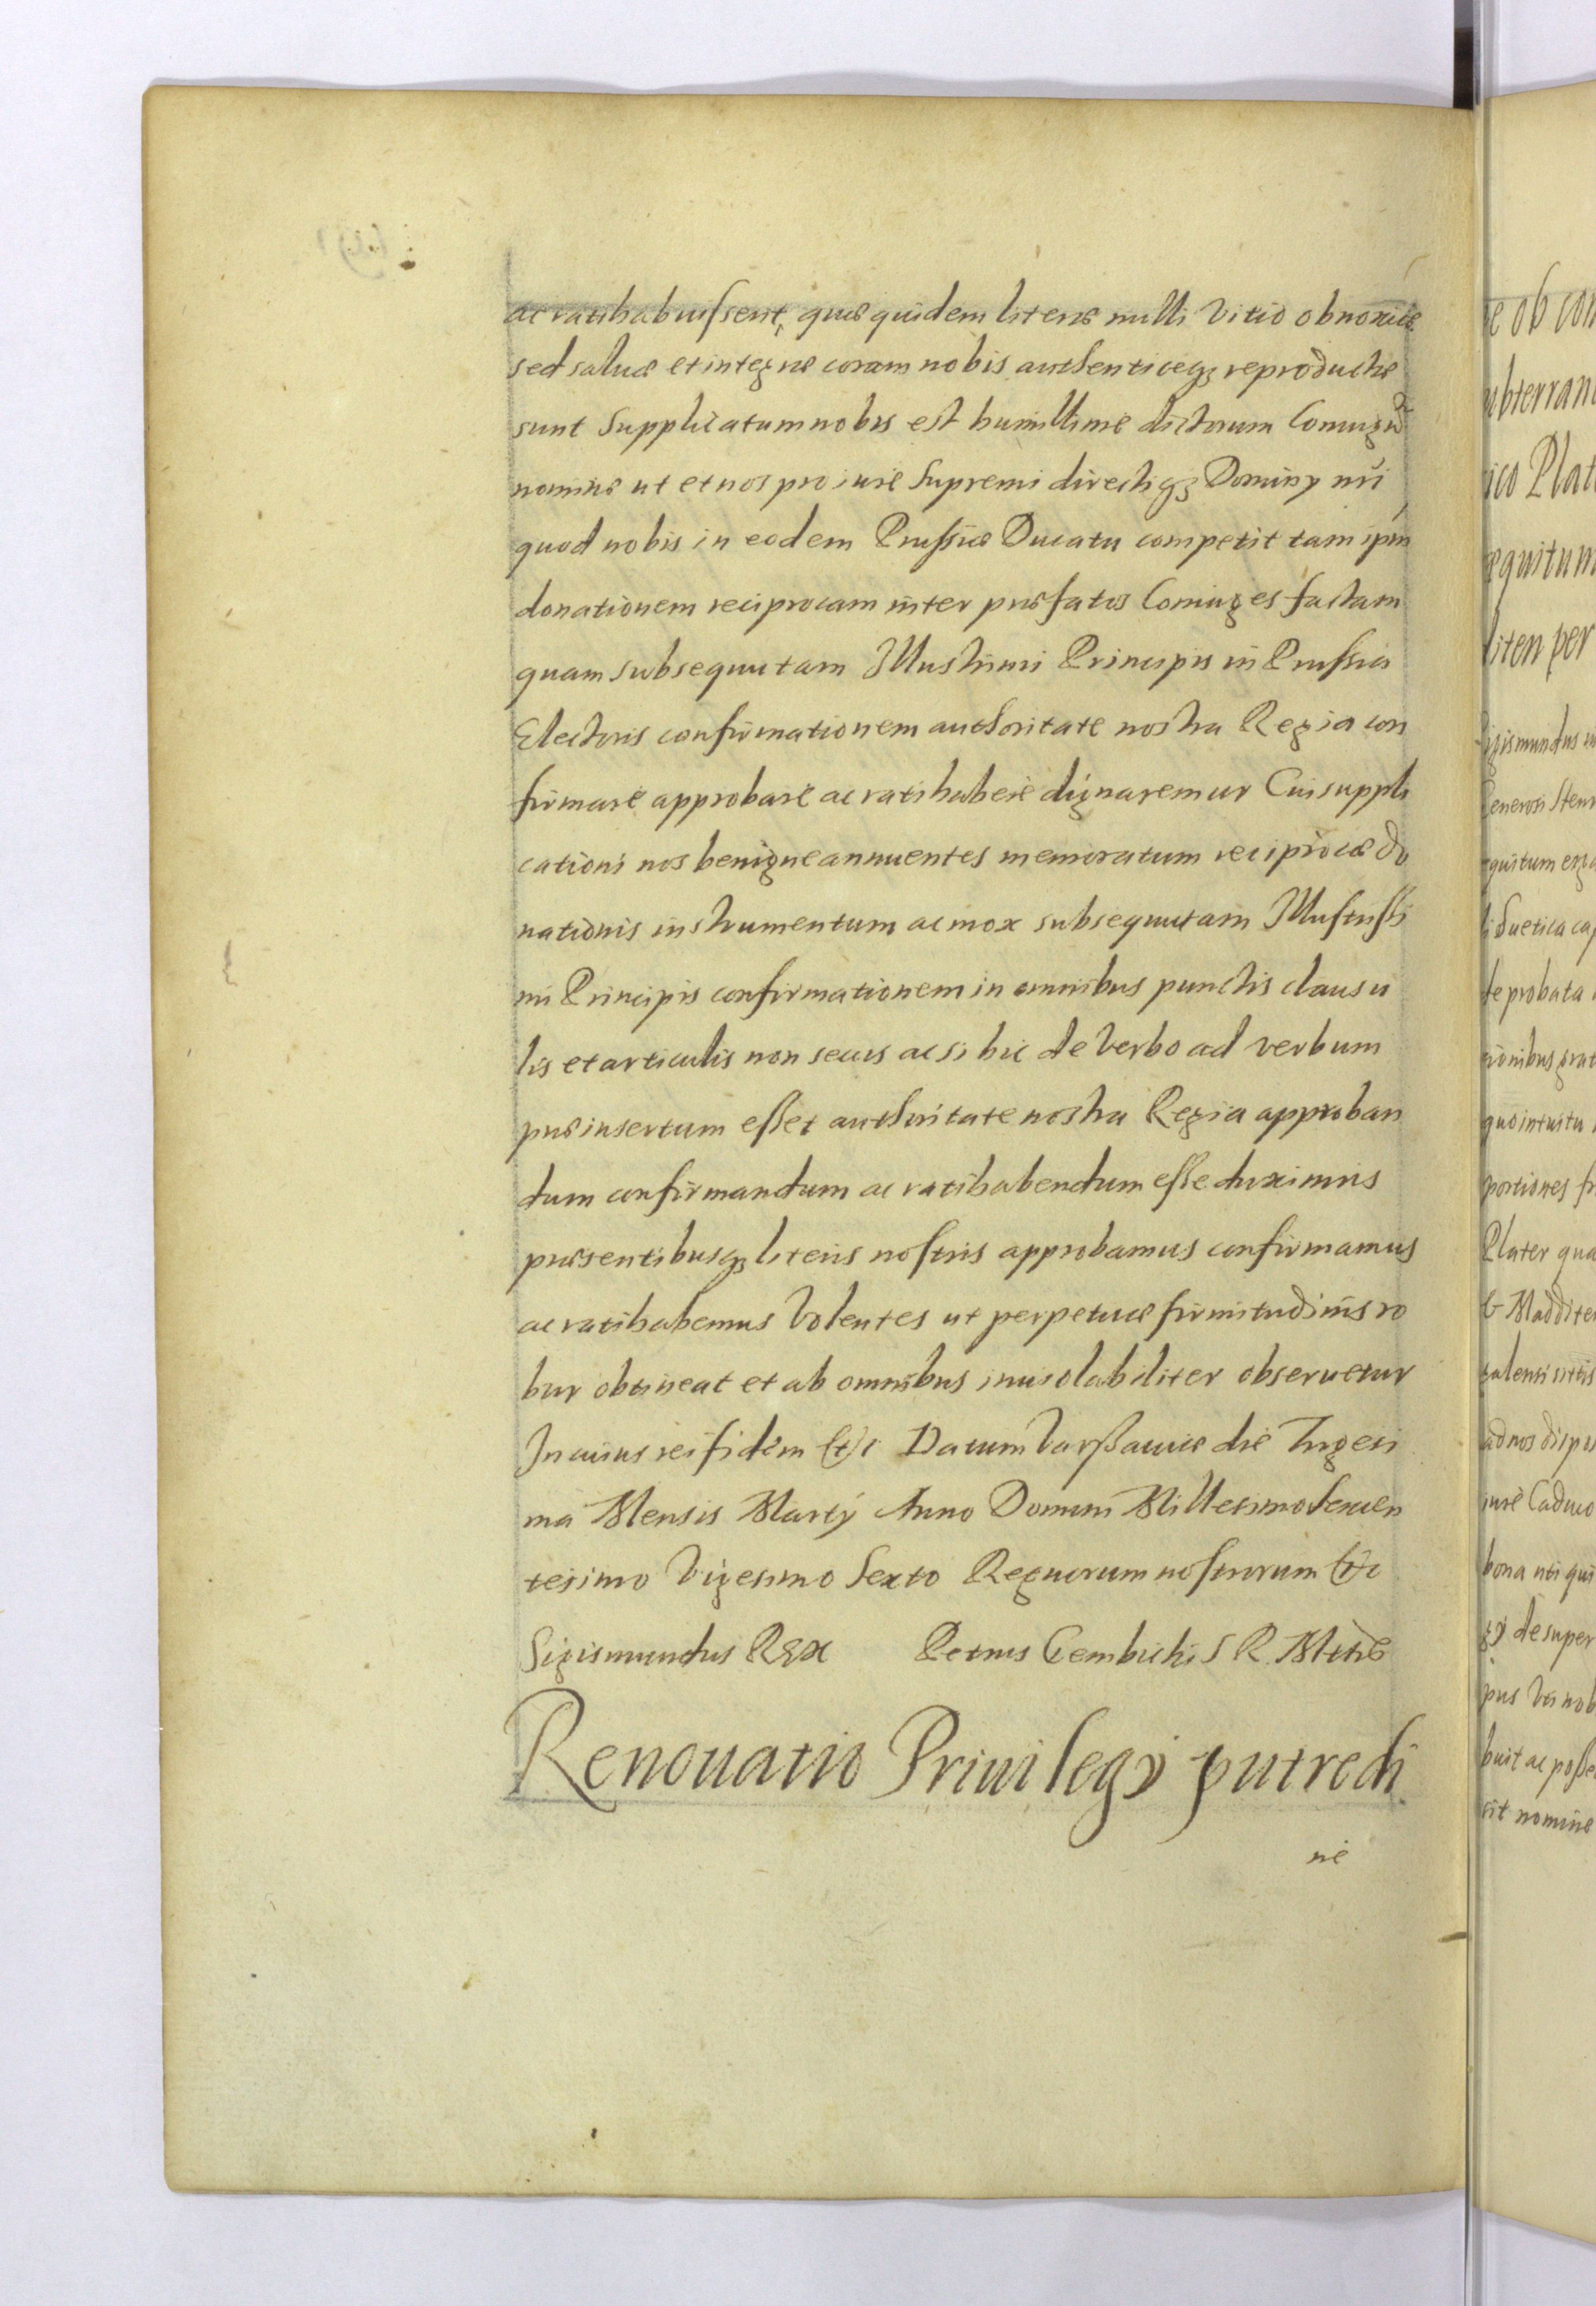 ac ratihabuissent, quæ quidem literæ nulli Vitio obnoxiæ
sed saluæ et integræ coram nobis authenticeq3 reproductæ
sunt Supplicatum nobis est humillime dictorum Coniugu
nomine ut et nos pro iure Supremi directiq3 Dominy nri
quod nobis in eodem Prussiæ Ducatu competit tam ipm
donationem reciprocam inter præfatos Coniuges factam
quam subsequutam Illustrimi Principis in Prussia
Electoris confirmationem authoritate nostra Regia con
firmare approbare ac ratihabere dignaremur Cui suppli
cationi nos benigne annuentes memoratum reciprocæ do
nationis instrumentum ac mox subsequutam Illustrissi
mi Principis confirmationem in omnibus punctis clausu
lis et articulis non secus ac si hic de Verbo ad verbum
præinsertum esset authoritate nostra Regia approban
dum confirmandum ac ratihabendum esse duximus
præsentibusq3 literis nostris approbamus confirmamus
ac ratihabemus Volentes ut perpetuæ firmitudinis ro
bur obtineat et ab omnibus inuiolabiliter obseruetur
In cuius rei fidem &c Datum Varßauiæ die Trigesi
ma Mensis Martÿ Anno Domini Millesimo Sexcen
tesimo Vigesimo Sexto Regnorum nostrorum &c
Sigismundus REX Petrus Gembicki S R Mttis
Renouatio Priuilegÿ putredi
ne
e ob con
ubterran
ico Plat
equitum
liten per
Sigismundus
Generosi
equitum erga
de probata
tionibus grat
quo intuitu
portiones
Plater qua
& Maddite
ad nos
iure Caduco
bona uti qui
de super
ius Vti nob
buit ac poße
sit nomine